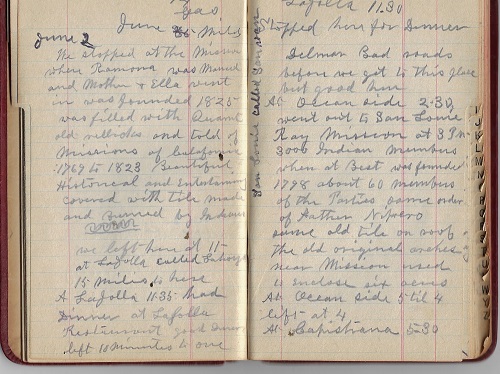 Gas
June 2 June 26 Miles
We stopped at the Mission
where Ramona was Married
and Mother & Ella went
in was founded 1825
was filled with
old relicks and told of
Missions of California
1769 to 1823 Beautiful
Historical and Entertaining
covered with tile made
and Burned by Indians
we left here at 11-
at Lajolla called Lahoya
15 miles to here
A Lajolla 11-35 had
Dinner at Lajolla
Restaurant good Dinner
left 10 minutes to one
San Louie called San
Lajolla 11.30
stopped here for Dinner
Delmar Bad roads
before we got to this place
but good here
At Ocean side 2-30
went out to San Louie
Ray Mission at 3 PM
3000 Indian Members
when at Best was founded
1798 about 60 members
of the Parties same order
of Father
same old tile on roof
the old original arches
near Mission used
to enclose six acres
At Ocean side 5 til 4
left at 4
At Capistrana 5-30